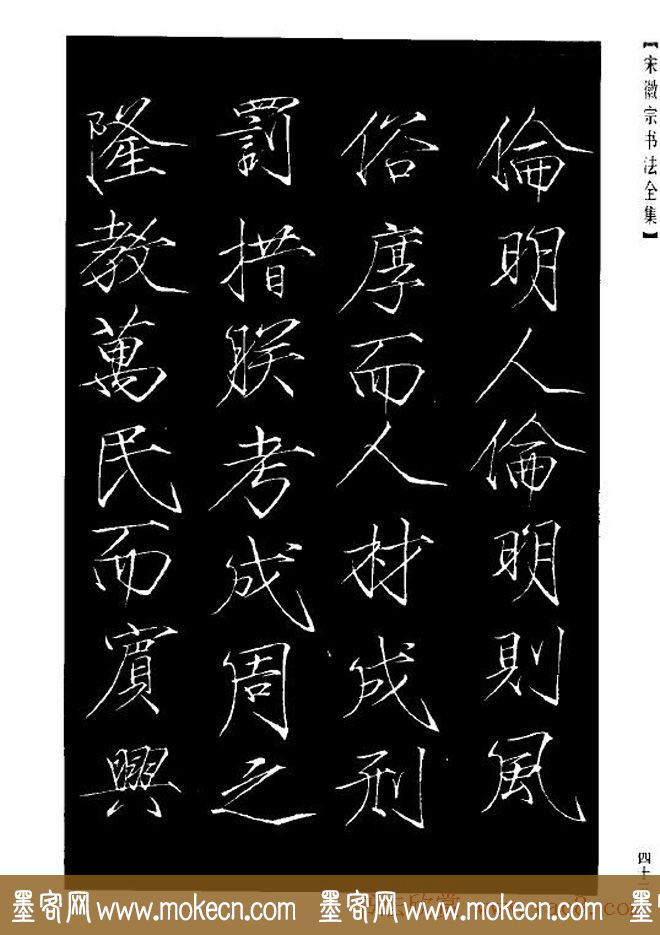 【宋徽宗书法全集】
倫明人倫明則風
俗厚而人材成刑
罰措朕考成周之
隆教萬民而賓興
墨客网 www.mokecn.com 墨客网 www.mokecn.com